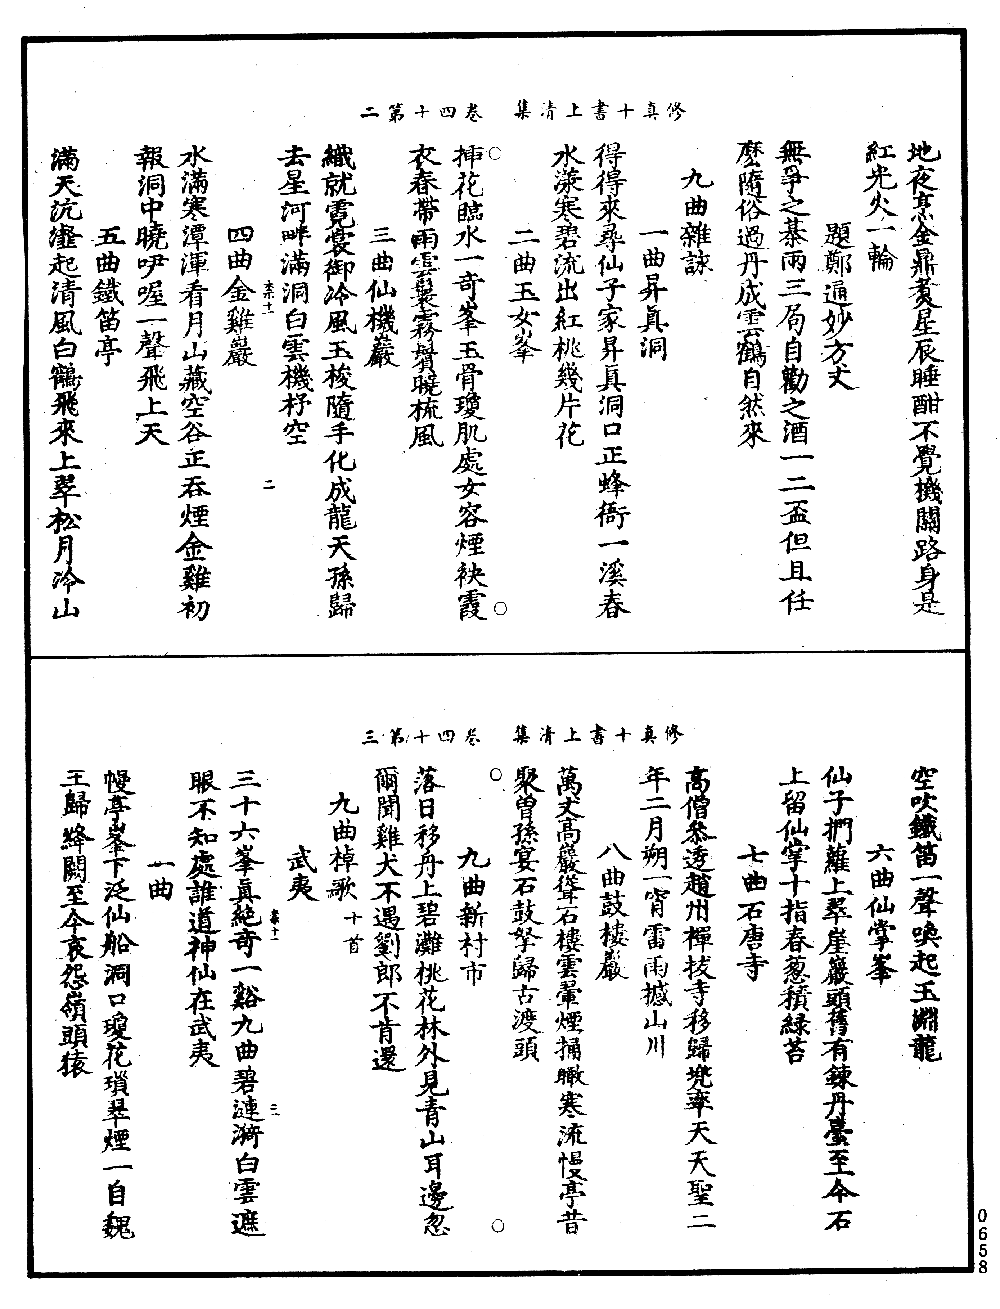 修真十書上清集　卷四十第二
地夜烹金鼎煑星辰睡酣不覺機關路身是
紅光火一輪
題鄭通妙方丈
無爭之棊兩三局自勸之酒一二盃但且任
麽隨俗過丹成雲鶴自然來
九曲雜詠
一曲昇真洞
得得來尋仙子家昇真洞口正蜂衙一溪春
水漾寒碧流出紅桃幾片花
二曲玉女峯
插花臨水一奇峯玉骨瓊肌處女容煙袂霞
衣春帶雨雲鬟霧鬢曉梳風
三曲仙機巖
織就霓裳御冷風玉梭隨手化成龍天孫歸
去星河畔滿洞白雲機杼空
二
四曲金雞巖
水滿寒潭渾看月山藏空谷正吞煙金雞初
報洞中曉咿喔一聲飛上天
五曲鐵笛亭
滿天沆瀣起清風白鶴飛來上翠松月冷山
修真十書上清集　卷四十第三
空吹鐵笛一聲喚起玉淵龍
六曲仙掌峯
仙子捫蘿上翠崖巖頭舊有鍊丹臺至今石
上留仙掌十指春葱積綠苔
七曲石唐寺
高僧叅透趙州禪拔寺移歸兜率天天聖二
年二月朔一宵雷雨撼山川
八曲鼓樓巖
萬丈高巖聳石樓雲暈煙捅瞰寒流幔亭昔
聚曾孫宴石鼓拏歸古渡頭
九曲新村市
落日移丹上碧灘桃花林外見青山耳邊忽
爾聞雞犬不遇劉郎不肯還
九曲棹歌十首
武夷
三
三十六峯真絕奇一谿九曲碧漣漪白雲遮
眼不知處誰道神仙在武夷
一曲
幔亭峯下泛仙船洞口瓊花瑣翠煙一自魏
王歸絳闕至今哀怨嶺頭猿
0658